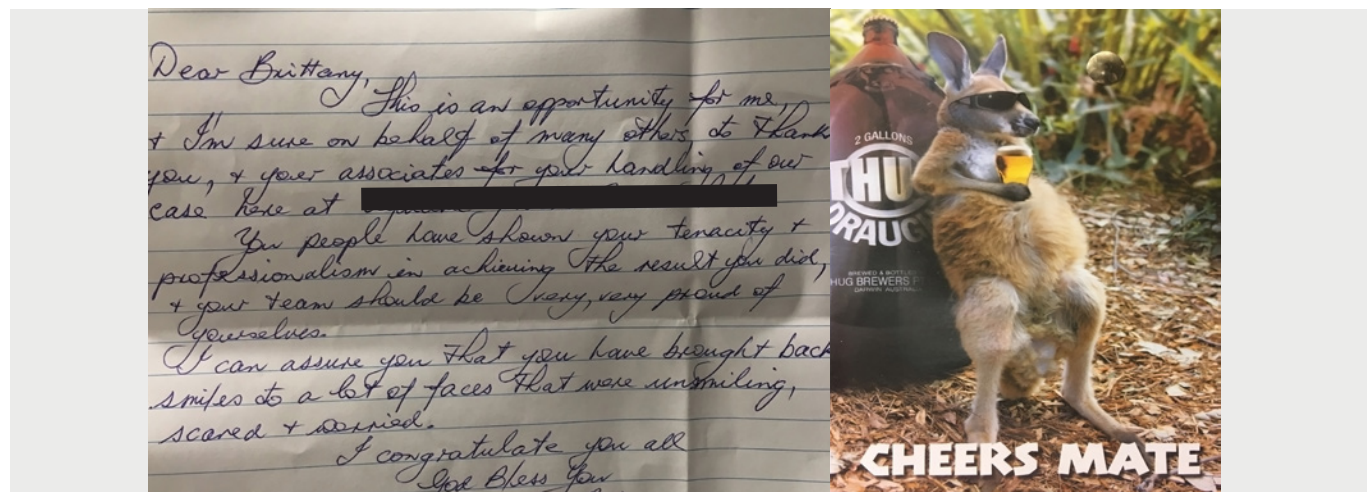 Dear Brittany,
This is an opportunity for me,
+ I'm sure on behalf of many others, to thank
you, + your associates for your handling of our
case here at
You people have shown your tenacity +
professionalism in achieving the result you did,
+ your team should be very, very proud of
yourselves.
I can assure you that you have brought back
smiles to a lot of faces that were unsmiling,
scared + worried.
I congratulate you all
God Bless You
2 GALLONS
THU
DRAUG
BREWED & BOTTLE
HUG BREWERS P
DARWIN AUSTRALI
CHEERS MATE